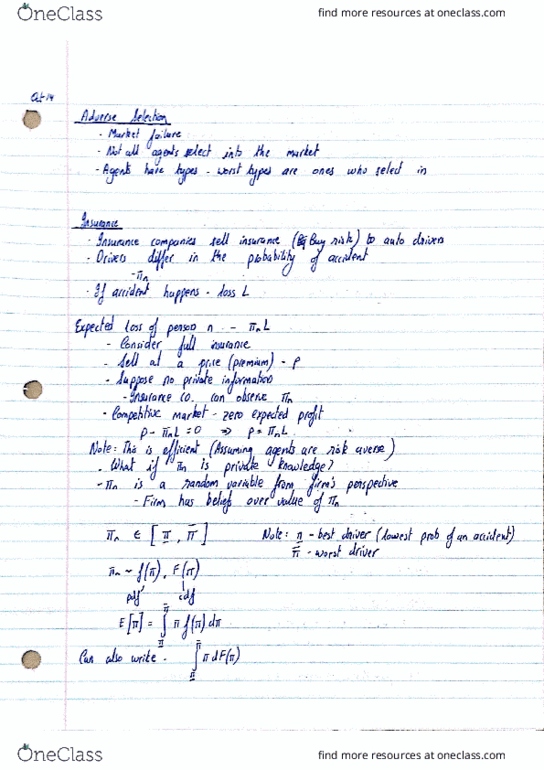 OneClass
find more resources at oneclass.com
Oct 14
Adverse Selection
- Market failure
- Not all agents select into the market
- Agents have types - worst types are ones who select in
Insurance
- Insurance companies sell insurance (Buy risk) to auto drivers
- Drivers differ in the probability of accident
- πn
- If accident happens - loss L
Expected loss of person n - πnL
- Consider full insurance
- Sell at a price (premium) - P
- Suppose no private information
- Insurance co. can observe πn
- Competitive market - zero expected profit
P - πnL = 0 ⇒ P = πnL
Note: This is efficient (Assuming agents are risk averse)
- What if πn is private knowledge?
- πn is a random variable from firm's perspective
- Firm has beliefs over value of πn
πn ∈ [π̲, π̄] Note: π̲ - best driver (lowest prob of an accident)
π̄ - worst driver
πn ~ f(π), F(π)
pdf cdf
E[π] = ∫π̲^π̄ π f(π) dπ
Can also write - ∫π̲^π̄ π dF(π)
OneClass
find more resources at oneclass.com